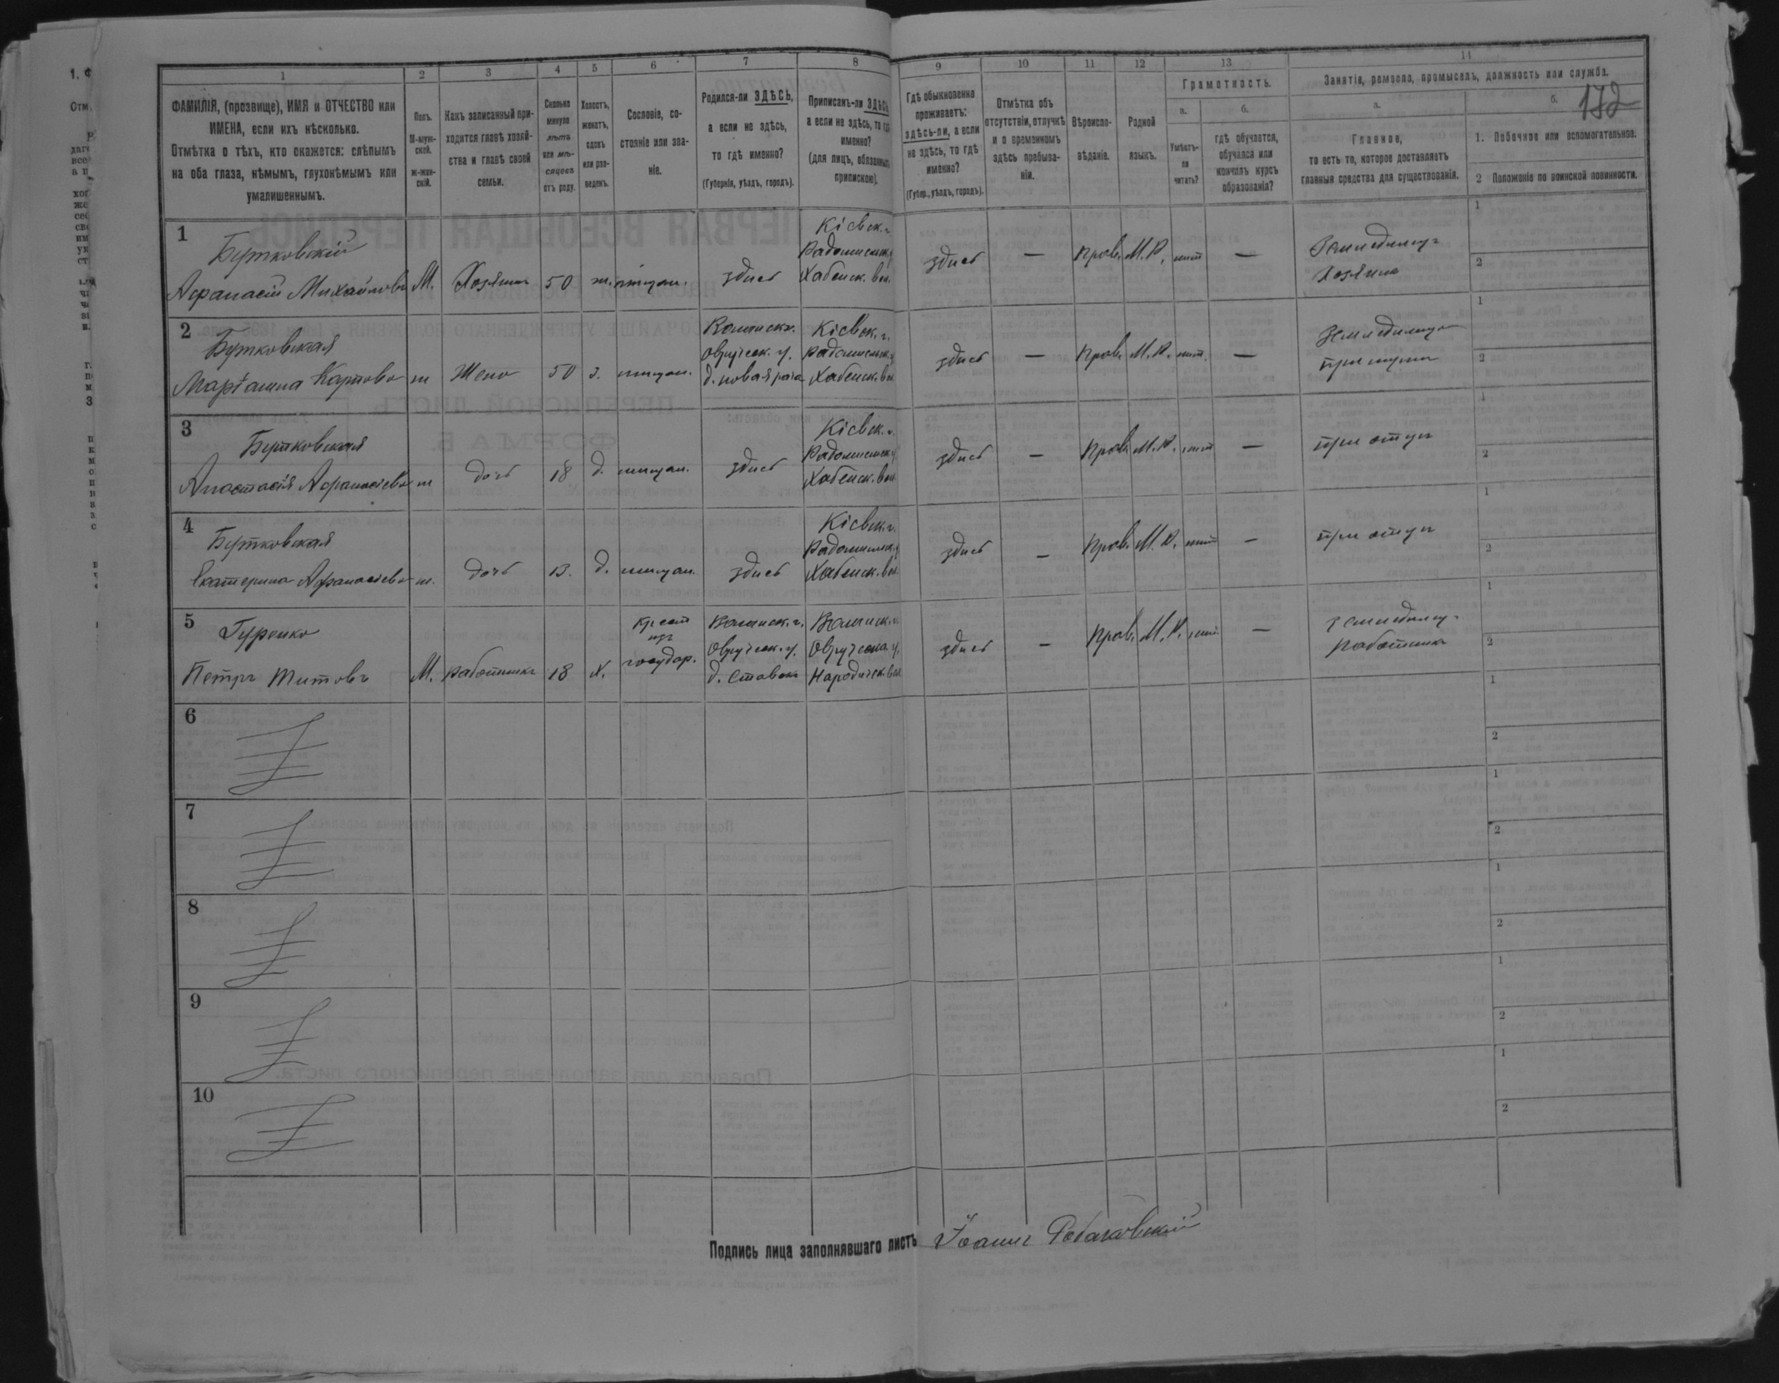 1 2 3 4 5 6 7 8 9 10 11 12 13 14
ФАМИЛІЯ, (прозвище), ИМЯ и ОТЧЕСТВО или
ИМЕНА, если ихъ нѣсколько.
Отмѣтка о тѣхъ, кто окажется: слѣпымъ
на оба глаза, нѣмымъ, глухонѣмымъ или
умалишеннымъ.
Полъ.
М-муж-
ской.
ж-жен-
скій.
Какъ записанный при-
ходится главѣ хозяй-
ства и главѣ своей
семьи.
Сколько
минуло
лѣтъ
или мѣ-
сяцевъ
отъ роду.
Холостъ,
женатъ,
вдовъ
или раз-
веденъ.
Сословіе, со-
стояніе или зва-
ніе.
Родился-ли ЗДѢСЬ,
а если не здѣсь,
то гдѣ именно?
(Губернія, уѣздъ, городъ).
Приписанъ-ли ЗДѢСЬ,
а если не здѣсь, то гдѣ
именно?
(для лицъ, обязанныхъ
припискою).
Гдѣ обыкновенно
проживаетъ:
здѣсь-ли, а если
не здѣсь, то гдѣ
именно?
(Губерн., уѣздъ, городъ).
Отмѣтка объ
отсутствіи, отлучкѣ
и о временномъ
здѣсь пребыва-
ніи.
Вѣроиспо-
вѣданіе.
Родной
языкъ.
Грамотность.
а.
Умѣетъ-
ли
читать?
б.
гдѣ обучается,
обучался или
кончилъ курсъ
образованія?
Занятіе, ремесло, промыселъ, должность или служба.
а.
Главное,
то есть то, которое доставляетъ
главныя средства для существованія.
б.
172
1. Побочное или вспомогательное.
2 Положеніе по воинской повинности.
1
Бутковскій
Афанасій Михайловъ М. Хозяинъ 50 ж. мѣщан. здѣсь
Кіевск. г.
Радомысльск. у.
Хабенск. вол.
здѣсь — Прав. М.Р. нѣт —
Земледѣлецъ
Хозяинъ
1
2
2
Бутковская
Жена 50 з. мѣщан.
Волынск. г.
Овручск. у.
Кіевск. г.
Радомысльск. у.
Хабенск. вол.
здѣсь — Прав. М.Р. нѣт. —
Земледѣлецъ
при мужѣ
1
2
3
Бутковская
Анастасія Афанасіева ж дочь 18 д. мѣщан. здѣсь
Кіевск. г.
Радомысльск. у.
Хабенск. вол.
здѣсь — Прав. М.Р. нѣт —
при отцѣ
1
2
4
Бутковская
Екатерина Афанасіева ж. дочь 13. д. мѣщан. здѣсь
Кіевск. г.
Радомысльск. у.
Хабенск. вол.
здѣсь — Прав. М.Р. нѣт —
при отцѣ
1
2
5
Гуренко
Петръ Титовъ М. работникъ 18 х.
крест
изъ
государ.
Волынск. г.
Овручск. у.
д. Ставки
Волынск. г.
Овручск. у.
Народичск. вол.
здѣсь — Прав. М.Р. нѣт. —
земледѣлец-
работникъ
1
2
6
1
2
7
1
2
8
1
2
9
1
2
10
1
2
Подпись лица заполнявшаго листъ Іоаннъ